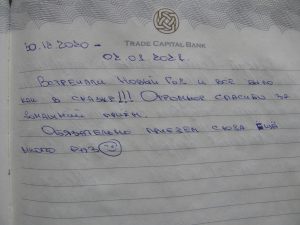 30.12.2020 -
TRADE CAPITAL BANK
02.01.2021
Встречали Новый Год и всё было
как в сказке!!! Огромное спасибо за
приём.
Обязательно приедем сюда ещё
много раз